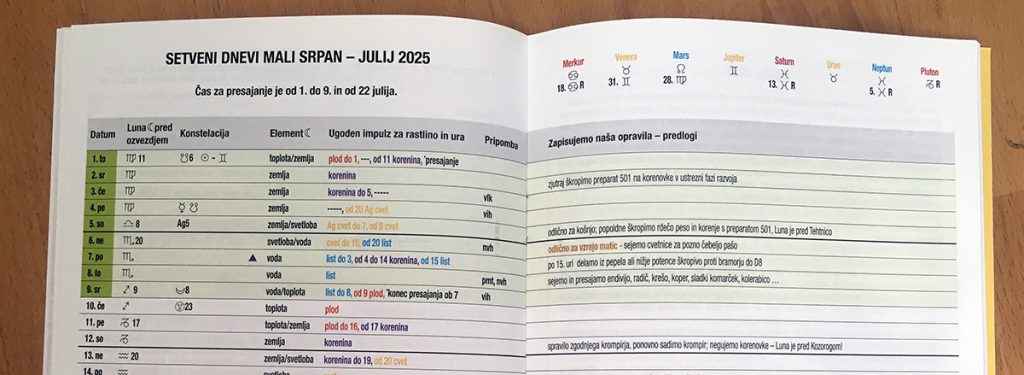 SETVENI DNEVI MALI SRPAN – JULIJ 2025
Čas za presajanje je od 1. do 9. in od 22 julija.
Datum Luna☾pred ozvezdjem Konstelacija Element☾ Ugoden impulz za rastlino in ura Pripomba
1. to ♍ 11 ☋6 ☉ - ♊ toplota/zemlja plod do 1, ---, od 11 korenina, *presajanje
2. sr ♍ zemlja korenina
3. če ♍ zemlja korenina do 5, ----- vlk
4. pe ♍ ☿ ☋ zemlja -----, od 20 Ag cvet vih
5. so ♎ 8 Ag5 zemlja/svetloba Ag cvet do 7, od 8 cvet
6. ne ♏ 20 svetloba/voda cvet do 19, od 20 list nvh
7. po ♏ ▲ voda list do 3, od 4 do 14 korenina, od 15 list
8. to ♏ voda list pmt, nvh
9. sr ♐ 9 8 voda/toplota list do 8, od 9 plod, *konec presajanja ob 7 vih
10. če ♐ 23 toplota plod
11. pe ♑ 17 toplota/zemlja plod do 16, od 17 korenina
12. so ♑ zemlja korenina
13. ne ♒ 20 zemlja/svetloba korenina do 19, od 20 cvet
14. po
Merkur Venera Mars Jupiter Saturn Uran Neptun Pluton
♋ ♉ ♌ ♊ ♓ ♉ ♓ ♑ R
18. ♋ R 31. ♊ 28. ♍ 13. ♓ R 5. ♓ R
Zapisujemo naša opravila – predlogi
zjutraj škropimo preparat 501 na korenovke v ustrezni fazi razvoja
odlično za košnjo; popoldne škropimo rdečo peso in korenje s preparatom 501, Luna je pred Tehtnico
odlično za vzrejo matic - sejemo cvetnice za pozno čebeljo pašo
po 15. uri delamo iz pepela ali nižje potence škropivo proti bramorju do D8
sejemo in presajamo endivijo, radič, krešo, koper, sladki komarček, kolerabico ...
spravilo zgodnjega krompirja, ponovno sadimo krompir; negujemo korenovke – Luna je pred Kozorogom!